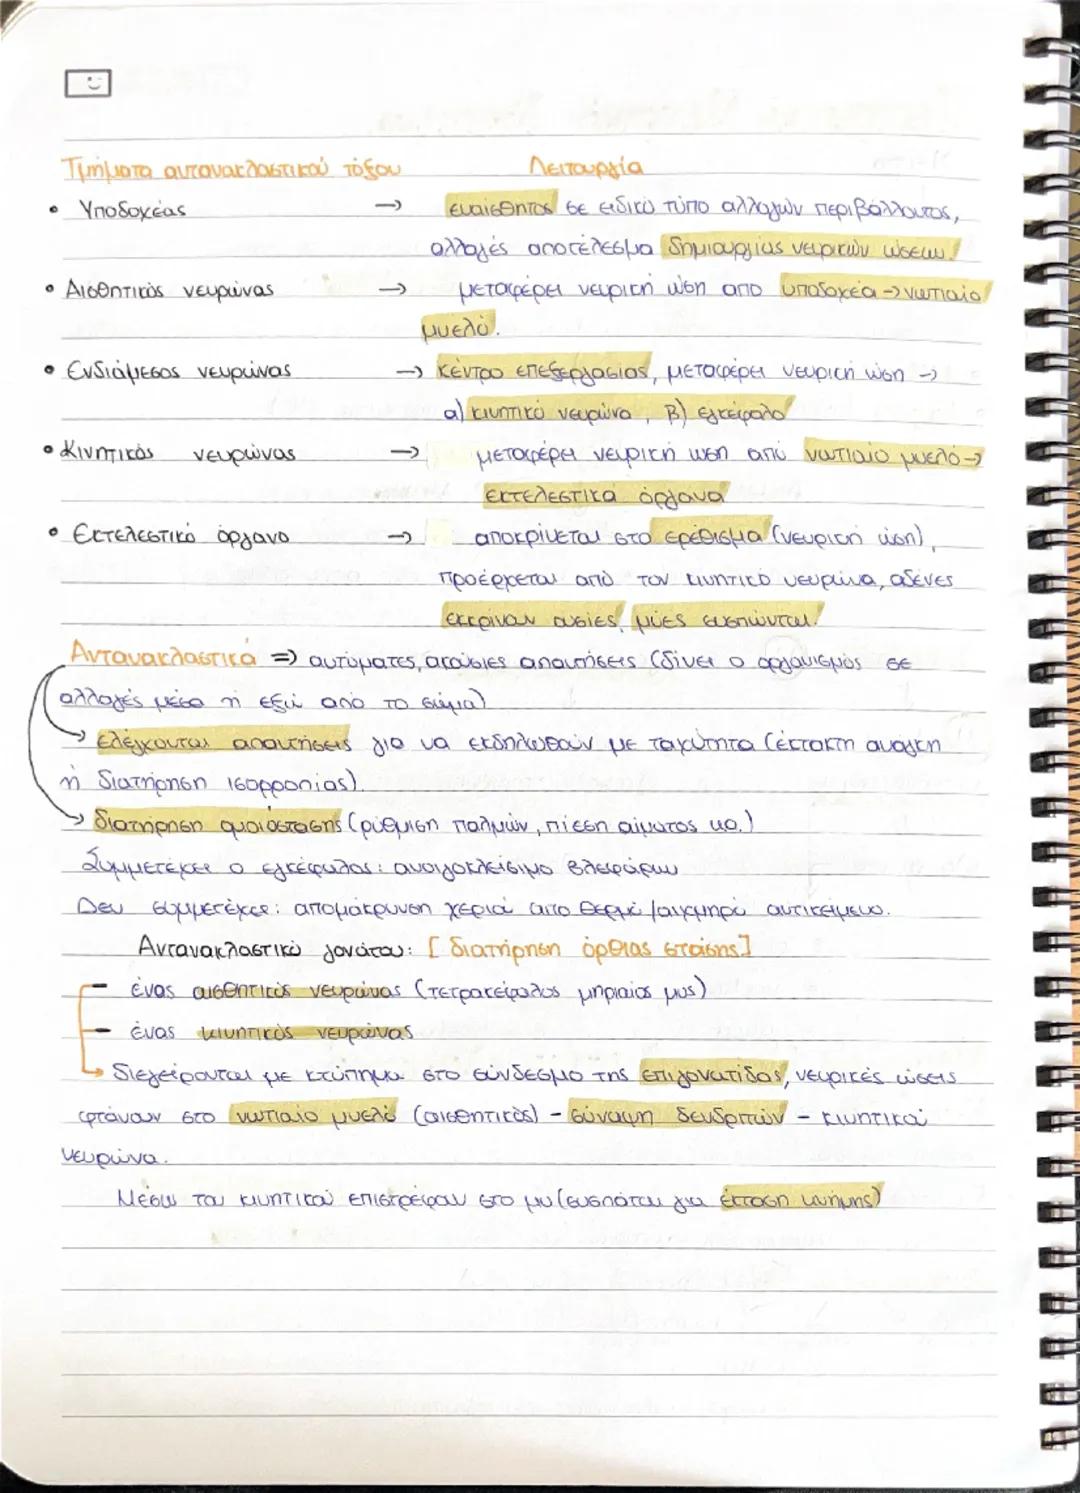 Τμήματα αντανακλαστικού τόξου Λειτουργία
• Υποδοχέας → ευαίσθητος σε ειδικό τύπο αλλαγών περιβάλλοντος,
αλλαγές αποτέλεσμα δημιουργίας νευρικών ώσεων.
• Αισθητικός νευρώνας → μεταφέρει νευρική ώση από υποδοχέα → νωτιαίο
μυελό.
• Ενδιάμεσος νευρώνας → κέντρο επεξεργασίας, μεταφέρει νευρική ώση →
α) κινητικό νευρώνα, β) εγκέφαλο
• Κινητικός νευρώνας → μεταφέρει νευρική ώση από νωτιαίο μυελό →
εκτελεστικά όργανα
• Εκτελεστικό όργανο → αποκρίνεται στο ερέθισμα (νευρική ώση),
προέρχεται από τον κινητικό νευρώνα, αδένες
εκκρίνουν ουσίες, μύες συσπώνται.
Αντανακλαστικά ⇒ αυτόματες, ακούσιες απαντήσεις (δίνει ο οργανισμός σε
αλλαγές μέσα ή έξω από το σώμα)
→ ελέγχονται απαντήσεις για να εκδηλωθούν με ταχύτητα (έκτακτη ανάγκη
ή διατήρηση ισορροπίας).
→ διατήρηση ομοιόστασης (ρύθμιση παλμών, πίεση αίματος κα.)
Συμμετέχει ο εγκέφαλος: ανοιγοκλείσιμο βλεφάρων
Δεν συμμετέχει: απομάκρυνση χεριού από θερμό / αιχμηρό αντικείμενο.
Αντανακλαστικό γονάτου: [διατήρηση όρθιας στάσης]
- ένας αισθητικός νευρώνας (τετρακέφαλος μηριαίος μυς)
- ένας κινητικός νευρώνας
→ διεγείρονται με κτύπημα στο σύνδεσμο της επιγονατίδας, νευρικές ώσεις
φτάνουν στο νωτιαίο μυελό (αισθητικός) - σύναψη δενδριτών - κινητικού
νευρώνα.
Μέσω του κινητικού επιστρέφουν στο μυ (συσπάται για έκταση κνήμης)